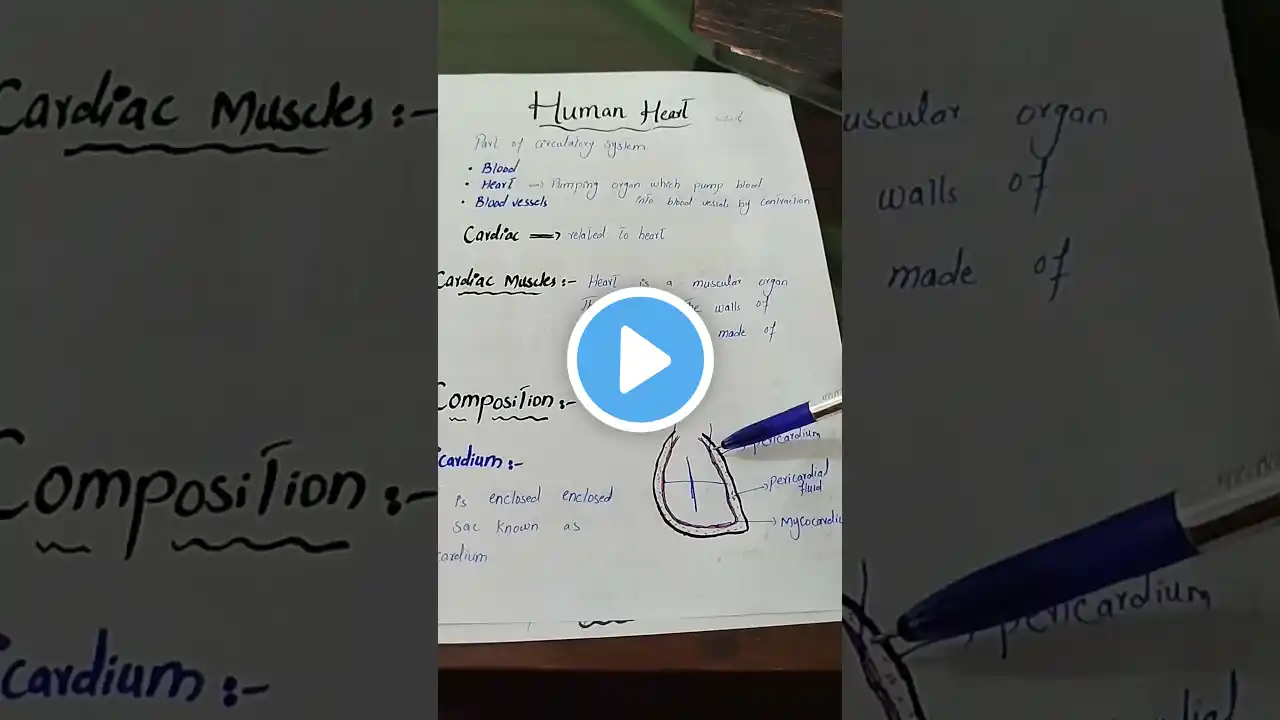 Human Heart
Part of circulatory system
• Blood
• Heart → Pumping organ which pump blood
into blood vessels by contraction
• Blood vessels
Cardiac → related to heart
Cardiac Muscles :- Heart is a muscular organ
The walls of
made of
Composition :-
cardium :-
is enclosed enclosed
sac known as
cardium
pericardium
pericardial
fluid
Mycocardiu
Cardiac Muscles :-
Composition :-
cardium :-
uscular organ
walls of
made of
pericardium